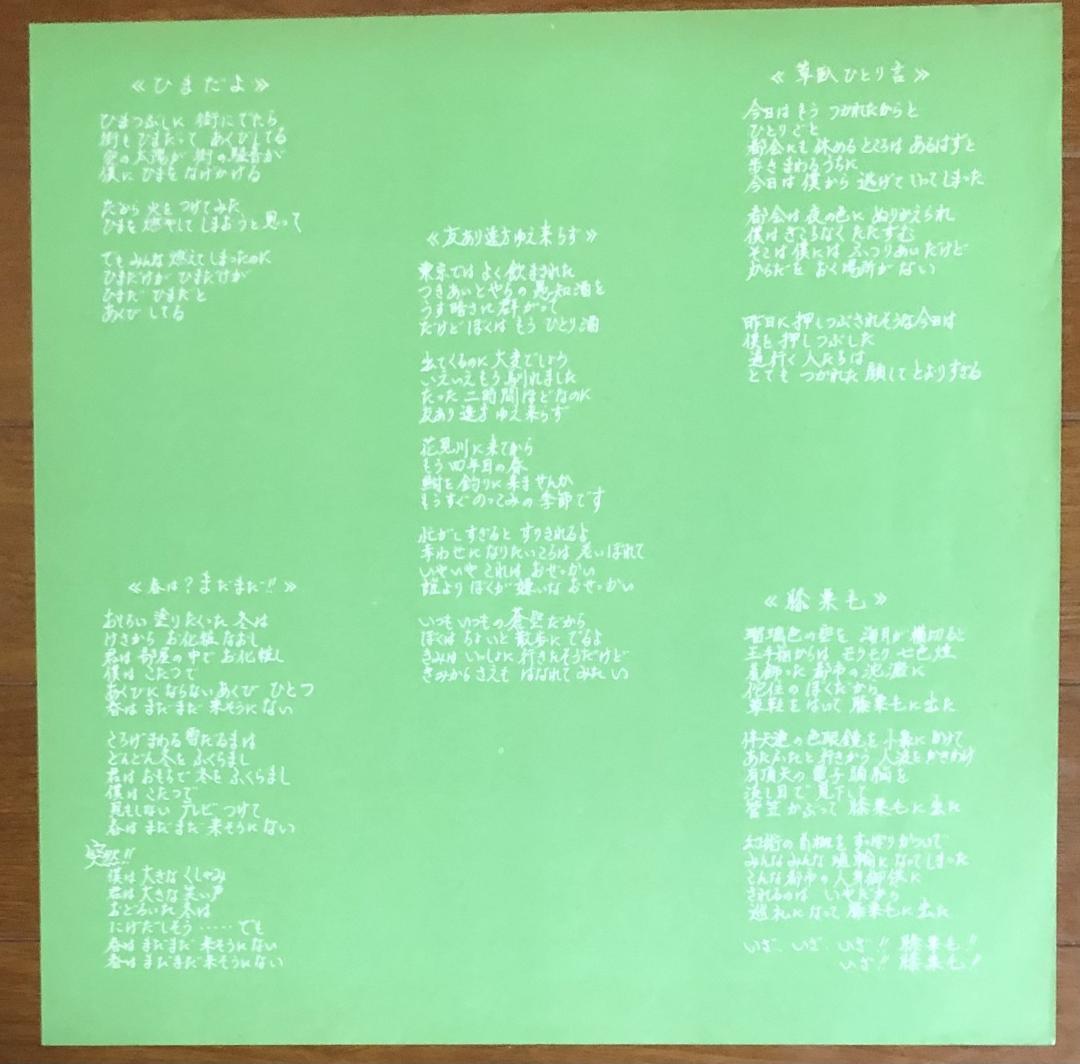 ≪ひまだよ≫
ひまつぶしに 街にでたら
街も ひまだって あくびしてる
空の太陽が 街の騒音が
僕に ひまを なげかける
だから 火を つけてみた
ひまを 燃やして しまおうと思って
でも みんな 燃えてしまったのに
ひまだけが ひまだけが
ひまだ ひまだと
あくび してる
≪春は?まだまだ!!≫
おしろい 塗りたくった 冬は
けさから お化粧 なおし
君は 部屋の中で お化粧し
僕は こたつで
あくびに ならない あくび ひとつ
春は まだまだ 来そうに ない
ころげまわる 雪だるまは
どんどん 冬を ふくらまし
君は おもちで 冬を ふくらまし
僕は こたつで
見もしない テレビ つけて
春は まだまだ 来そうに ない
突然!!
僕は 大きな くしゃみ
君は 大きな 笑い声
おどろいた 冬は
にげだしそう …… でも
春は まだまだ 来そうに ない
春は まだまだ 来そうに ない
≪友あり遠方ゆえ来らず≫
東京では よく 飲まされた
つきあいとやらの 愚知酒を
うす暗さに 群がって
だけど ぼくは もう ひとり酒
出てくるのに 大変でしょう
いえいえ もう 馴れました
たった 二時間 ほどなのに
友あり 遠方 ゆえ 来らず
花見川に 来てから
もう 四年目の 春
鮒を 釣りに 来ませんか
もうすぐ のっこみの 季節です
忙がしすぎると すりきれるよ
幸わせに なりたいころは 老いぼれて
いやいや これは おせっかい
誰より ぼくが 嫌いな おせっかい
いつも いつもの 蒼空だから
ぼくは ちょいと 散歩に でるよ
きみは いっしょに 行きたそうだけど
きみからさえも はなれて みたい
≪草臥ひとり言≫
今日は もう つかれたからと
ひとりごと
都会にも 休める ところは あるはずと
歩き まわるうちに
今日は 僕から 逃げて いってしまった
都会は 夜の色に ぬりかえられ
僕は ぎこちなく たたずむ
そこは 僕には ふつりあいだけど
からだを おく場所が ない
昨日に 押しつぶされそうな 今日は
僕を 押しつぶした
道行く 人たちは
とても つかれた 顔して とよりすぎる
≪膝栗毛≫
瑠璃色の空を 海月が 横切ると
玉手箱からは モクモク 七色煙
着飾った 都市の 氾濫に
佗住の ぼくだから
草鞋を はいて 膝栗毛に 出た
伴天連の 色眼鏡を 小鼻に かけて
あたふたと 行きかう 人波を かきわけ
有頂天の 電子 駒鞠を
流し目で 見下して
菅笠 かぶって 膝栗毛に 出た
幻術の 首枷を すっぽり かついで
みんな みんな 埴輪に なって しまった
こんな 都市の 人身御供に
されるのは いやだから
巡礼に なって 膝栗毛に 出た
いざ、いざ、いざ!! 膝栗毛!!
いざ!! 膝栗毛!!